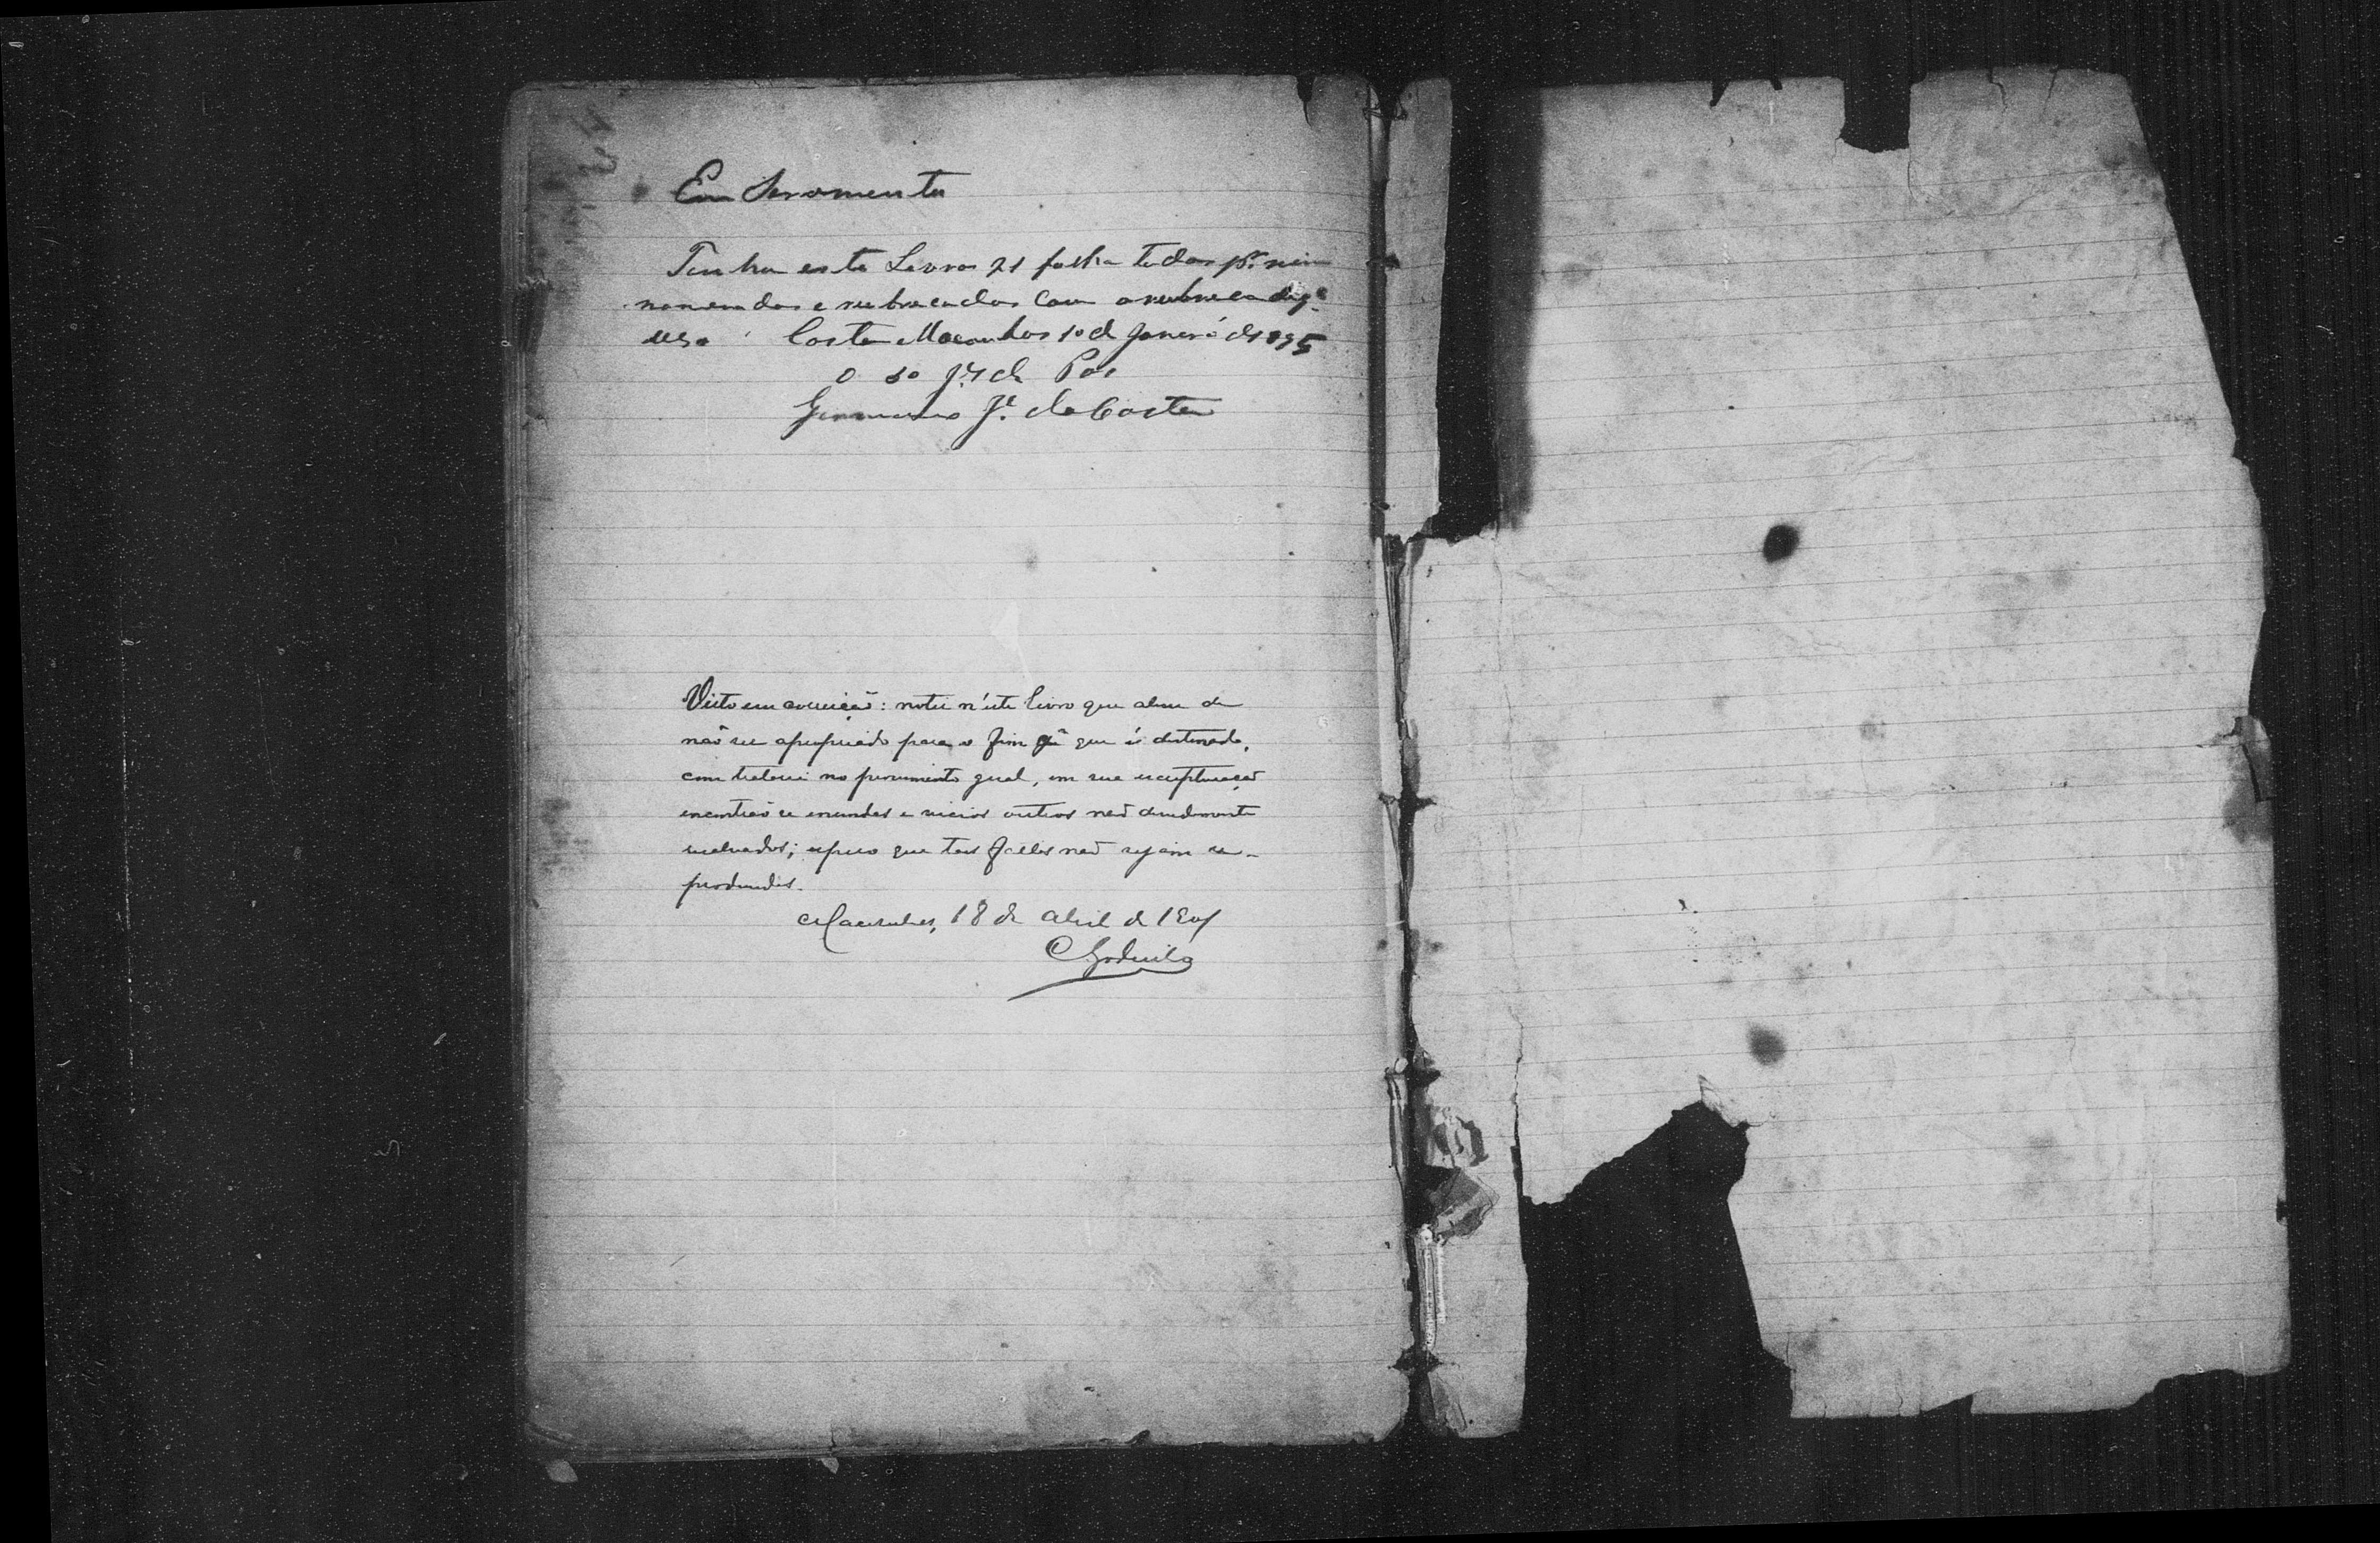 Em Seramento
Tenho este Levro 21 folha todas pr. mim
nomeradas e rubrecadas Com a rubreca de q.
uso Costa Macanhas 1º de Janero de 1895
O 3º J. de Pas
Germano J. da Costa
Visto em correição: notei n'este livro que alem de
não ser apropriado para o fim que é destinado,
com tratarei no provimento geral, em sua escripturação
encontrão se emendas e vicios outros não devidamente
resalvados; espero que taes faltas não sejam re-
produzidas.
18 de Abril de 1901